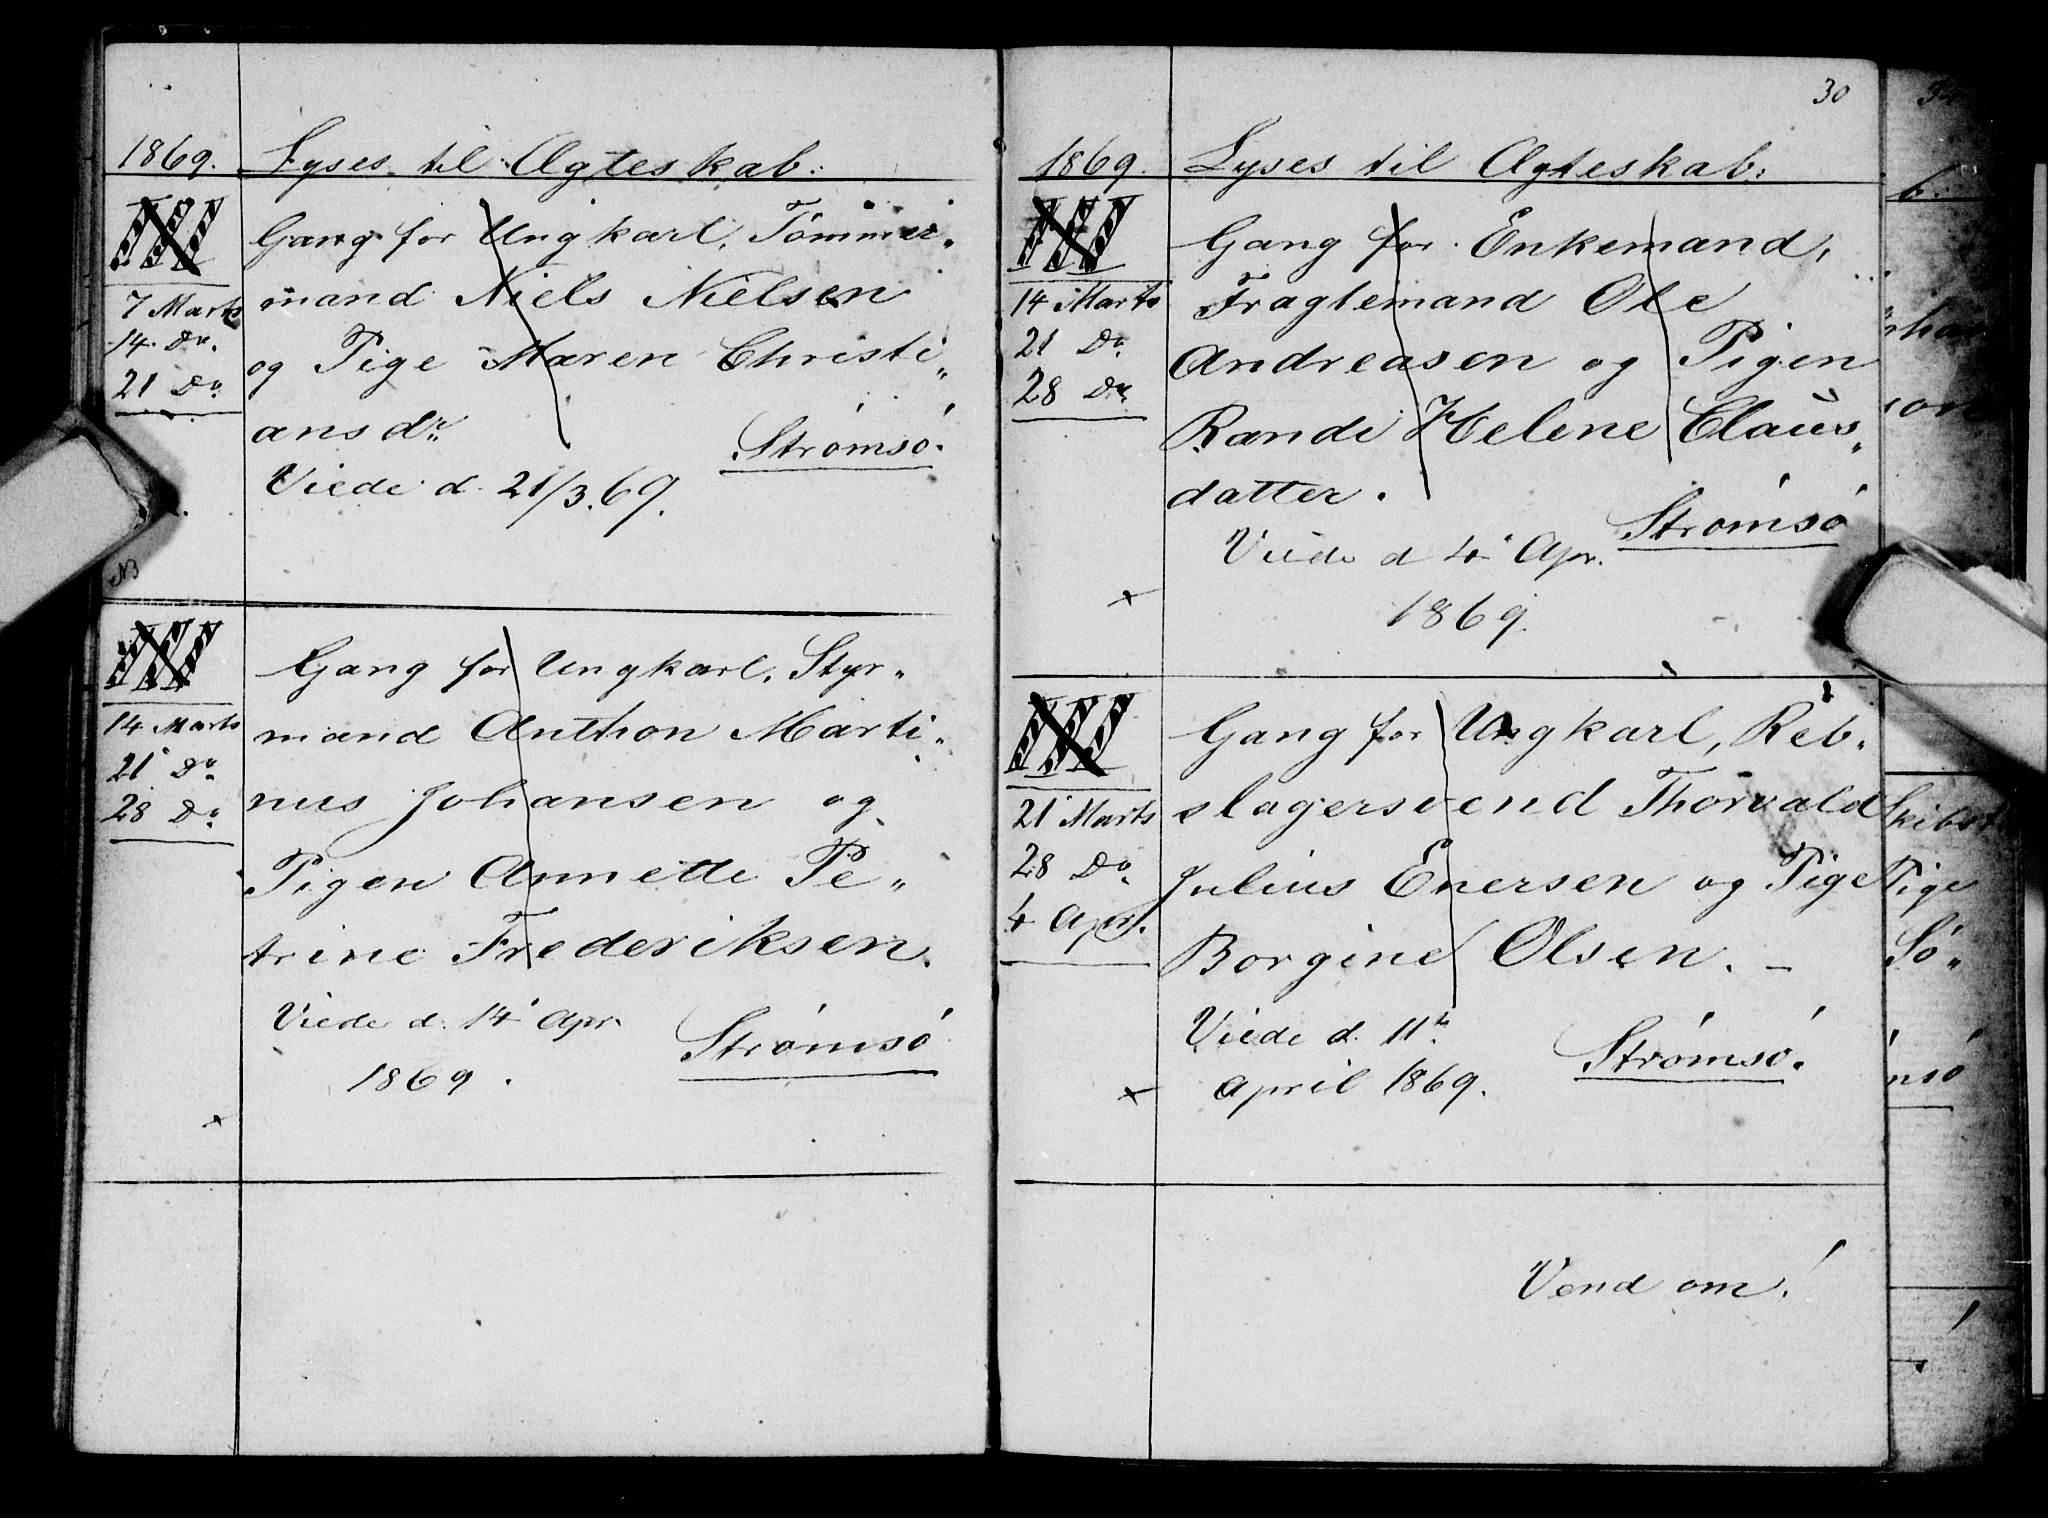 1869. Lyses til Ægteskab:
III
Gang for Ungkarl, Tömmer„
mand Niels Nielsen
7 Marts
14. Do.
og Pige Maren Christi„
21 Do.
ansdr.
Strömsö.
Viede d. 21/3.69.
NB
III
Gang for Ungkarl, Styr„
14 Marts
mand Anthon Marti„
21 Do.
nus Johansen og
28 Do.
Pigen Annette Pe„
trine Frederiksen.
Viede d. 14 Apr.
Strömsö
1869.
x
30
1869. Lyses til Ægteskab:
III
Gang for Enkemand,
14 Marts
Fragtemand Ole
21 Do.
Andreasen og Pigen
28 Do.
Randi Helene Claus„
datter.
Strömsö
Viede d 4 Apr.
x
1869.
III
Gang for Ungkarl, Reb„
21 Marts
slagersvend Thorvald
28 Do.
Julius Enersen og Pige
4 Apr.
Borgine Olsen. –
Viede d. 11te
Strömsö.
x
April 1869.
Vend om!
b.
Skibst
Pige
Sö„
msö